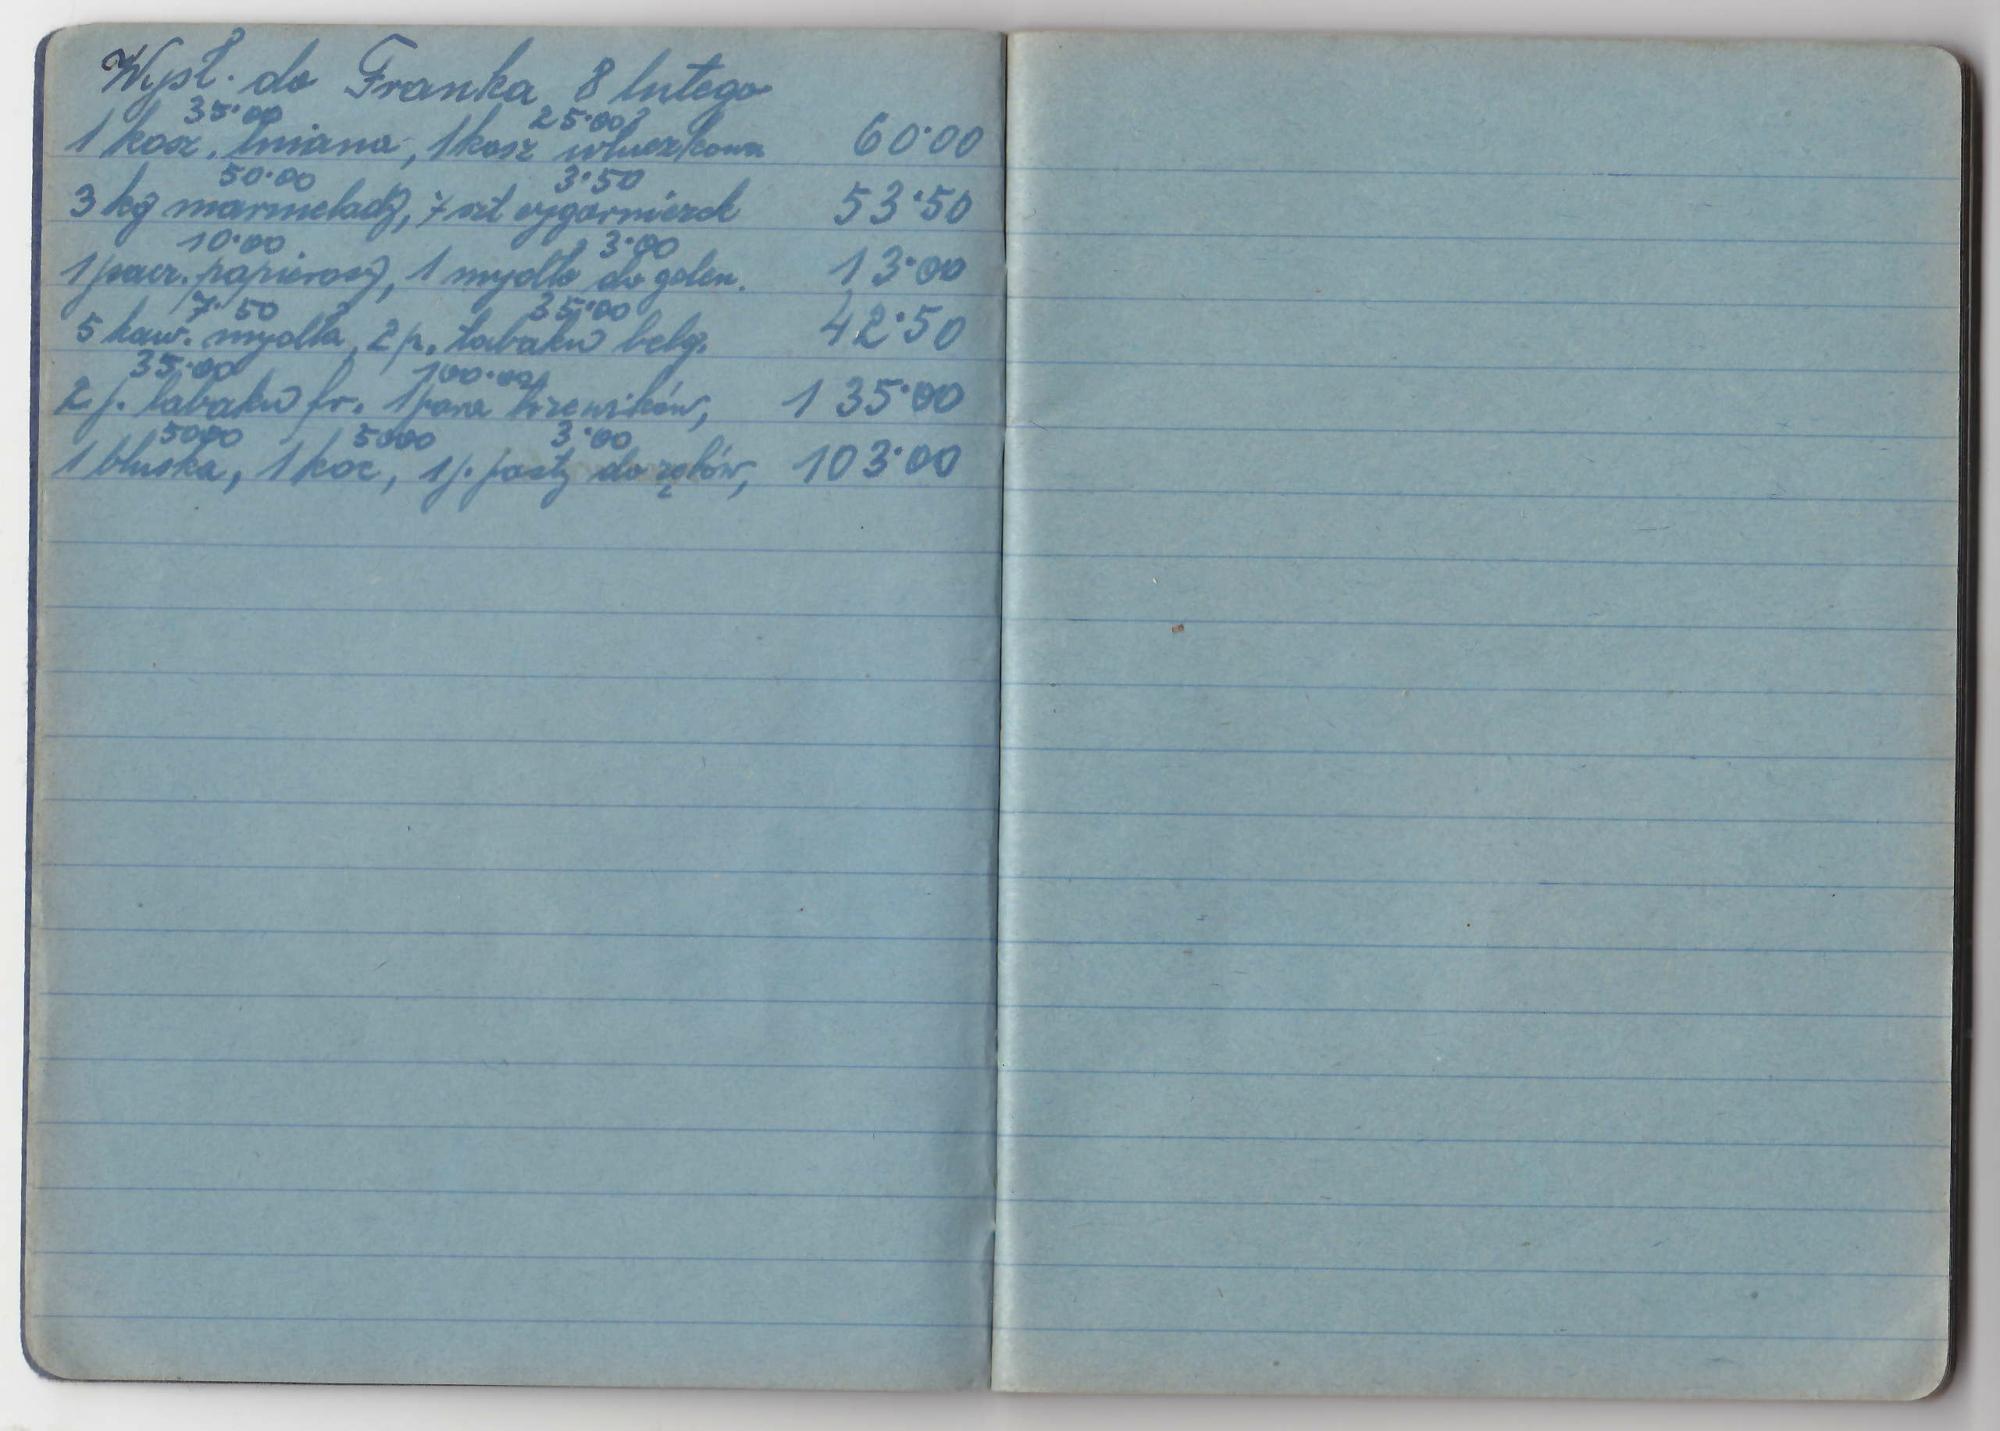 Wysł. do Franka 8 lutego
35·00 25·00
1 kosz. lniana, 1 kosz włuczkowa 60·00
50·00 3·50
3 kg marmelady, 7 szt cygarniczek 53·50
10·00 3·00
1 pacz. papierosy, 1 mydło do golen. 13·00
7·50 35·00
5 kaw. mydła, 2 p. tabaku belg. 42·50
35·00 100·00
2 p. tabaku fr. 1 para trzewików, 135·00
5000 5000 3·00
1 bluska, 1 koc, 1 p. pasty do zębów, 103·00